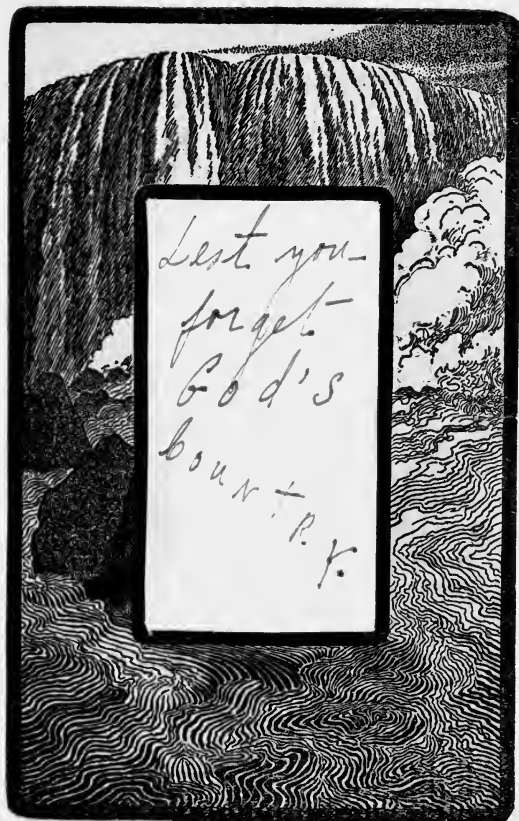 Lest you
forget
God's
CounTRY.